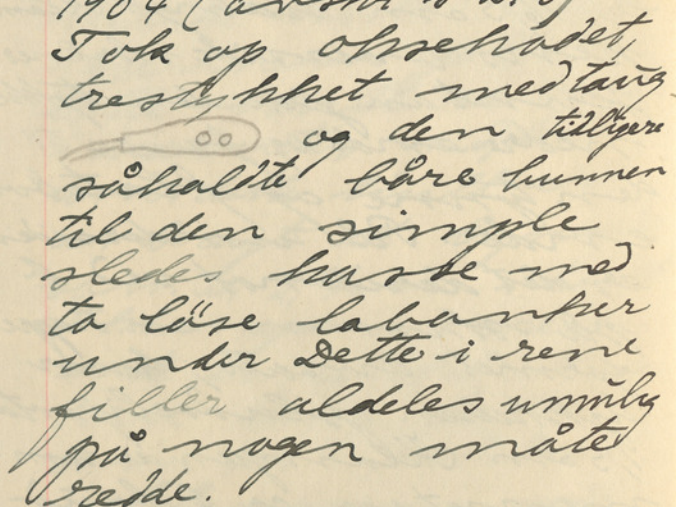 1904 (avskr
Tok op oksehodet,
trestykket med taug
og den tidligere
såkaldte båre bunnen
til den simple
sledes kasse med
to löse labanker
under Dette i rene
filler aldeles umulig
på nogen måte
redde.